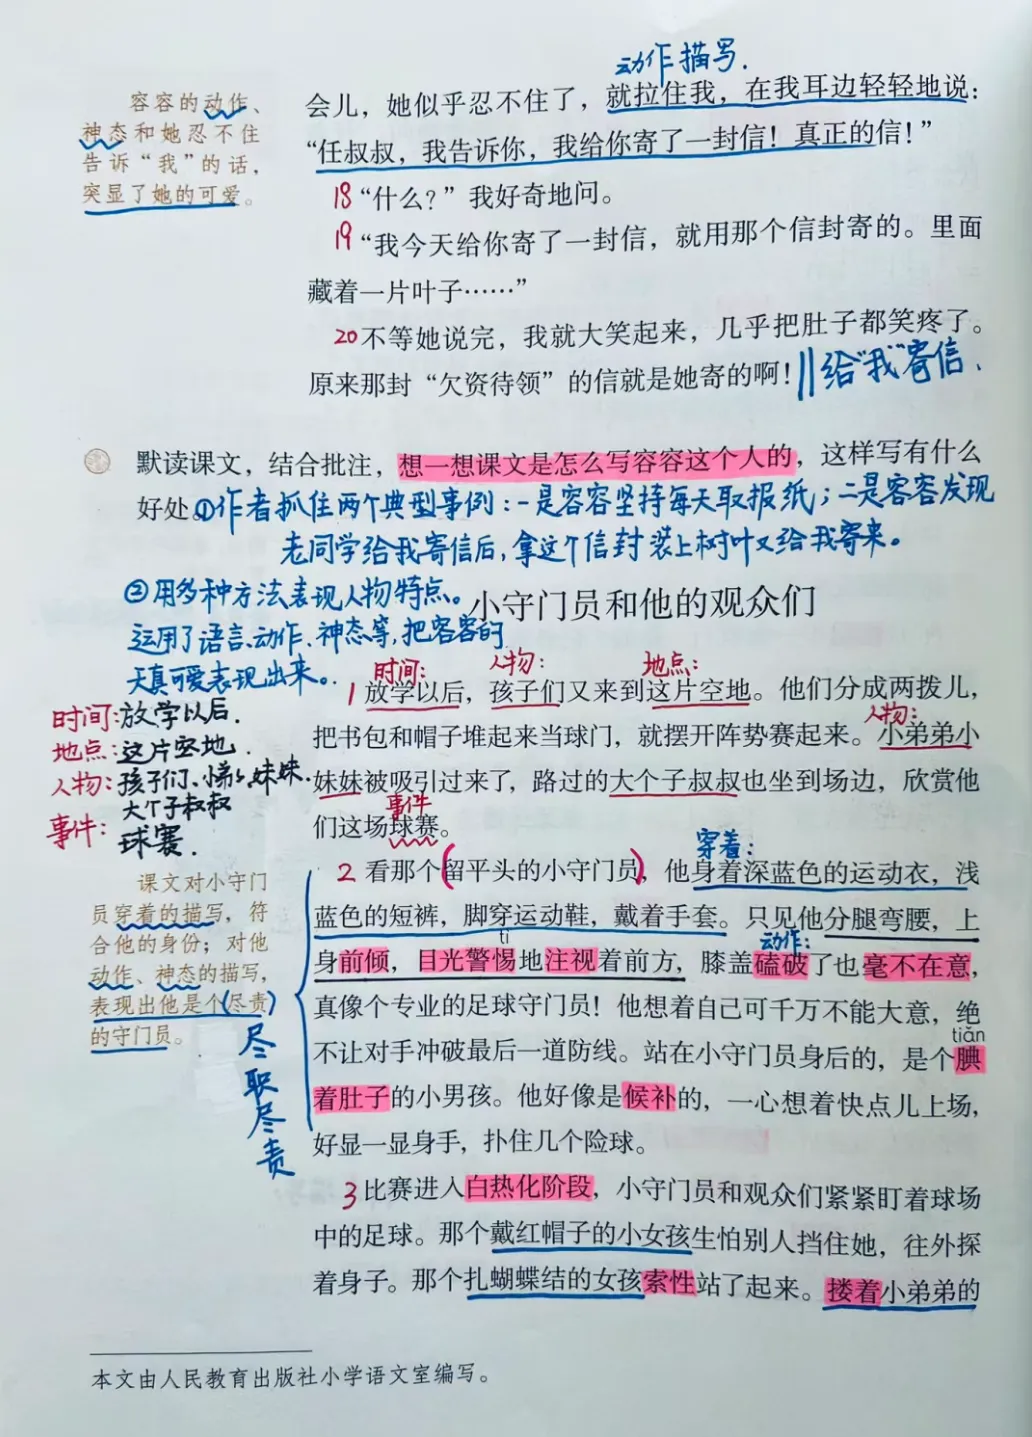 动作描写.
容容的动作、
神态和她忍不住
告诉“我”的话，
突显了她的可爱。
会儿，她似乎忍不住了，就拉住我，在我耳边轻轻地说：
“任叔叔，我告诉你，我给你寄了一封信！真正的信！”
18“什么？”我好奇地问。
19“我今天给你寄了一封信，就用那个信封寄的。里面
藏着一片叶子……”
20不等她说完，我就大笑起来，几乎把肚子都笑疼了。
原来那封“欠资待领”的信就是她寄的啊！‖给“我”寄信、
默读课文，结合批注，想一想课文是怎么写容容这个人的，这样写有什么
好处。①作者抓住两个典型事例：一是容容坚持每天取报纸；二是容容发现
老同学给我寄信后，拿这个信封装上树叶又给我寄来。
②用多种方法表现人物特点。
小守门员和他的观众们
运用了语言、动作、神态等，把容容的
天真可爱表现出来。
时间： 人物： 地点：
1放学以后，孩子们又来到这片空地。他们分成两拨儿，
人物：
把书包和帽子堆起来当球门，就摆开阵势赛起来。小弟弟小
妹妹被吸引过来了，路过的大个子叔叔也坐到场边，欣赏他
事件
们这场球赛。
时间：放学以后.
地点：这片空地.
人物：孩子们、小弟弟、妹妹.
大个子叔叔
事件：球赛.
课文对小守门
员穿着的描写，符
合他的身份；对他
动作、神态的描写，
表现出他是个(尽责)
的守门员。
尽职尽责
穿着：
2看那个(留平头的小守门员)，他身着深蓝色的运动衣，浅
蓝色的短裤，脚穿运动鞋，戴着手套。只见他分腿弯腰，上
tì
动作：
身前倾，目光警惕地注视着前方，膝盖磕破了也毫不在意，
真像个专业的足球守门员！他想着自己可千万不能大意，绝
tiǎn
不让对手冲破最后一道防线。站在小守门员身后的，是个腆
着肚子的小男孩。他好像是候补的，一心想着快点儿上场，
好显一显身手，扑住几个险球。
3比赛进入白热化阶段，小守门员和观众们紧紧盯着球场
中的足球。那个戴红帽子的小女孩生怕别人挡住她，往外探
着身子。那个扎蝴蝶结的女孩索性站了起来。搂着小弟弟的
本文由人民教育出版社小学语文室编写。